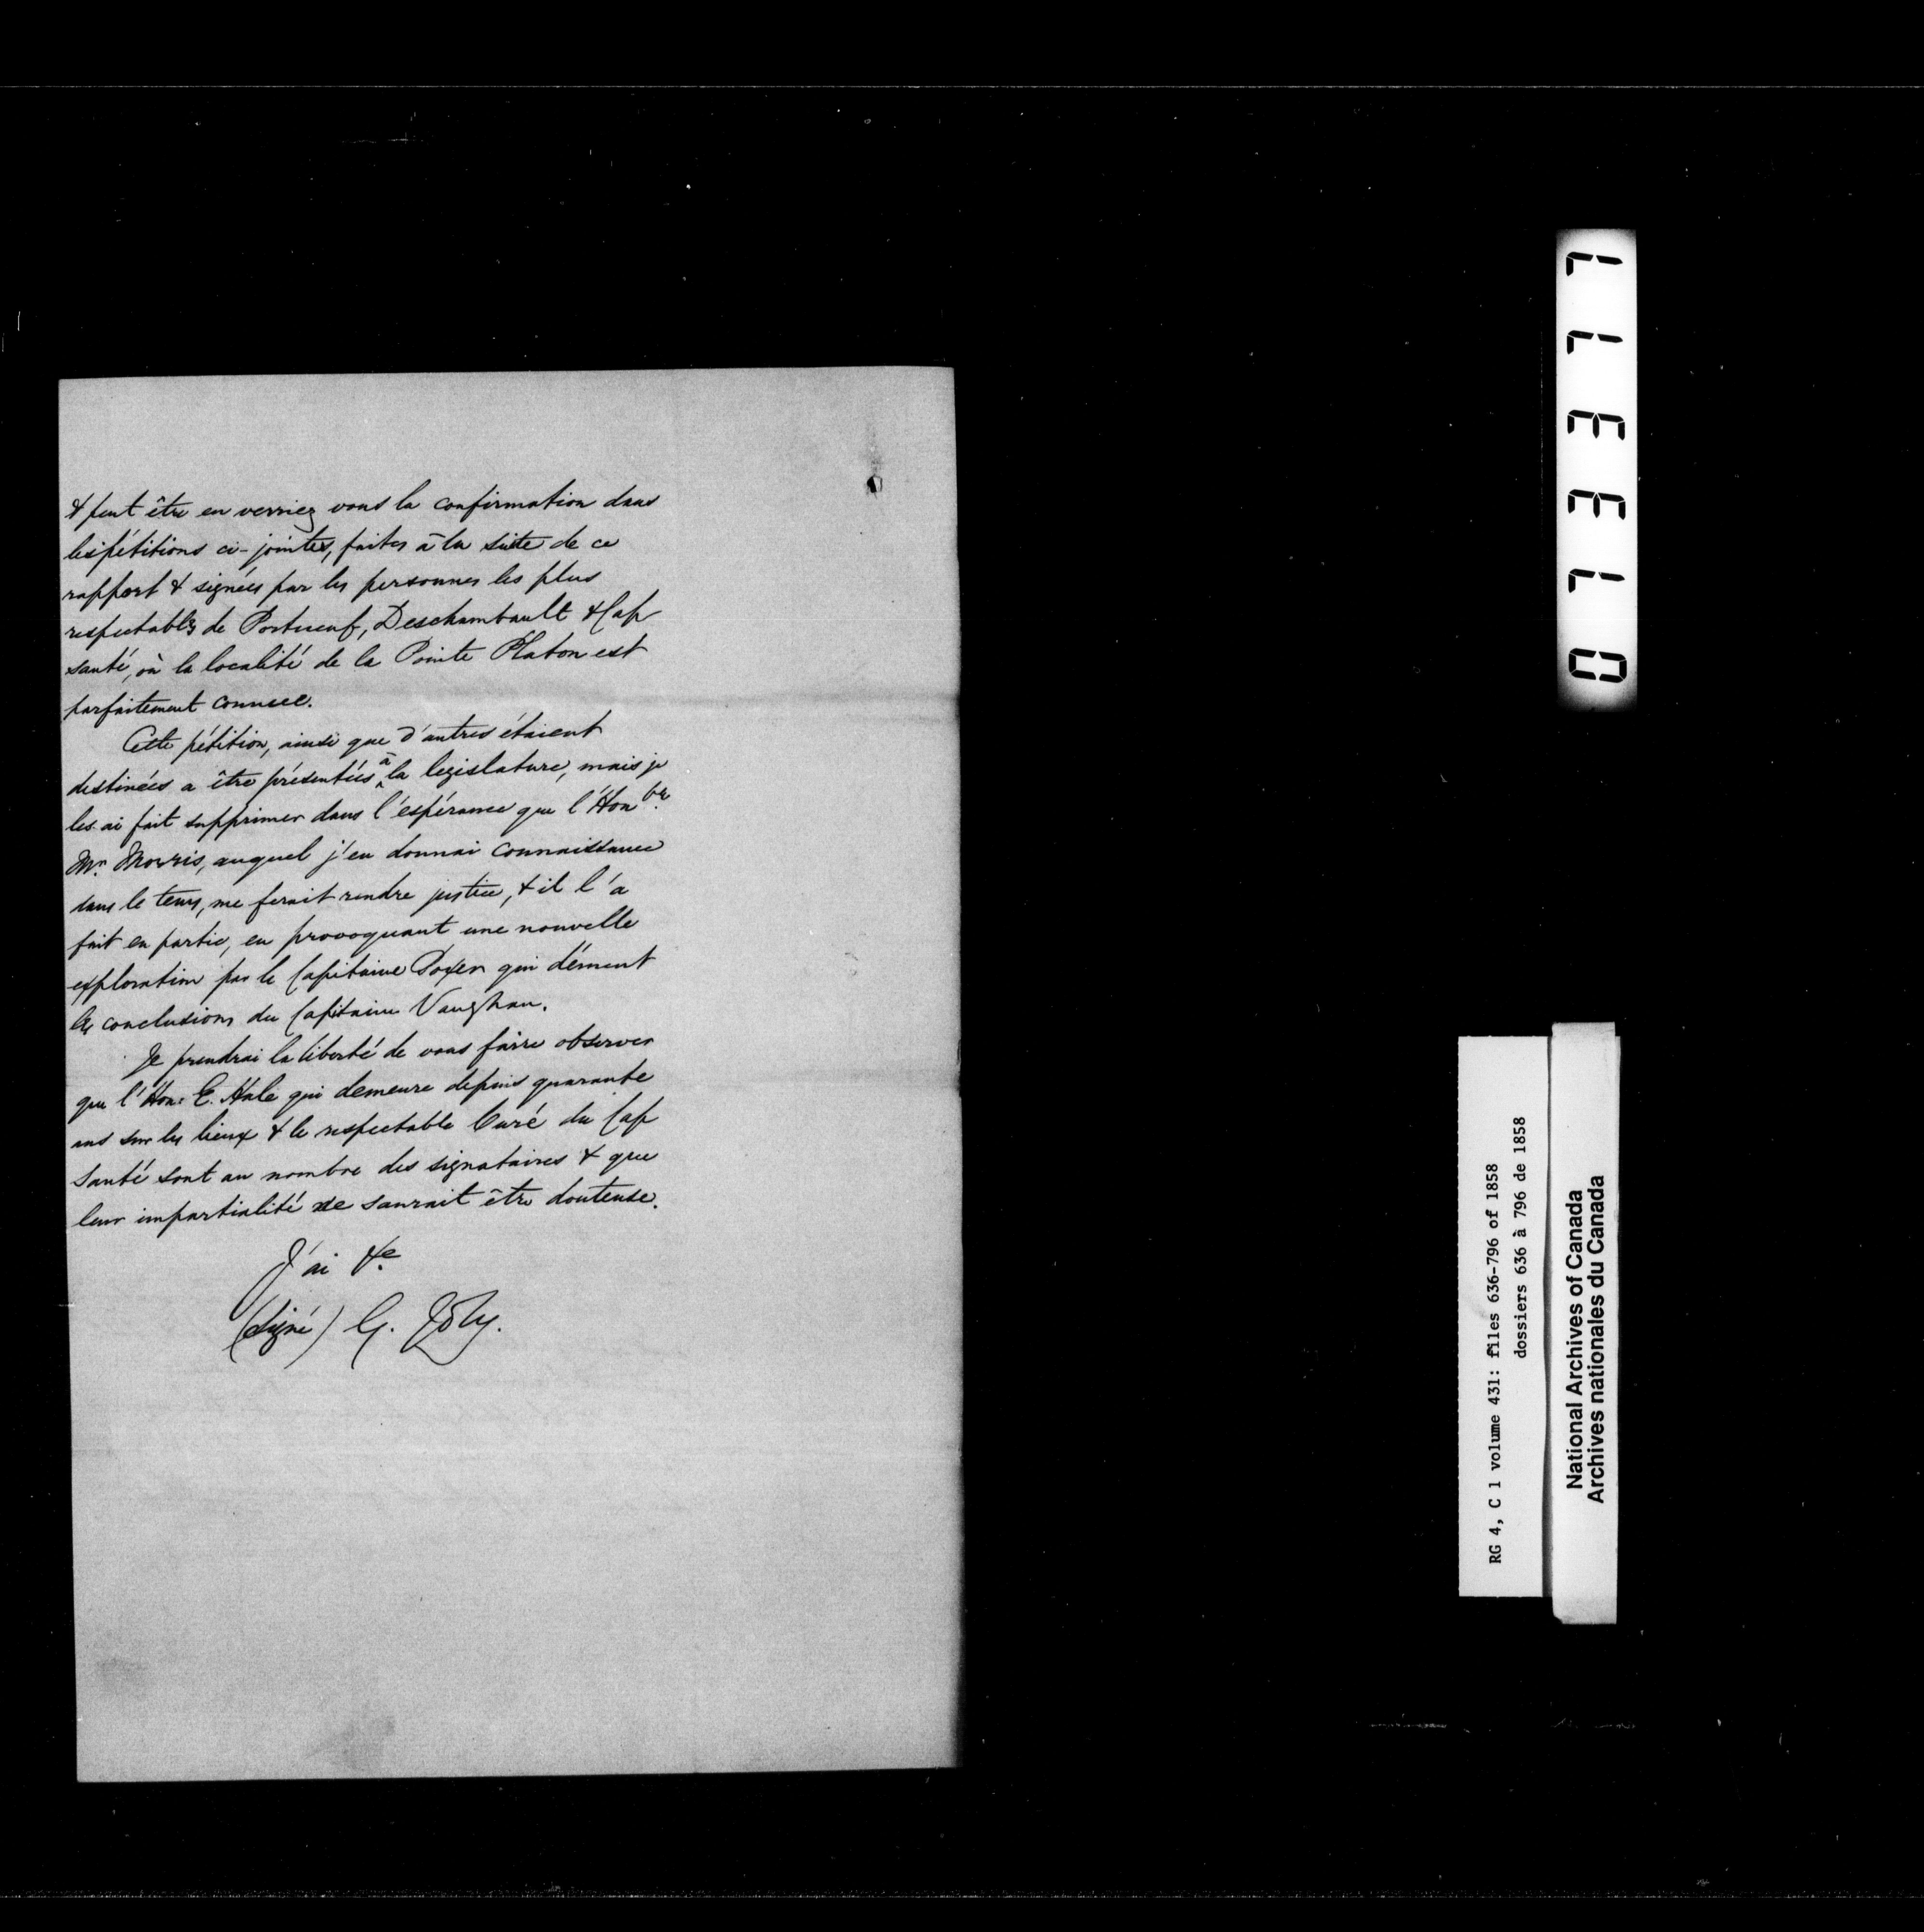 & peut être en verriez vous la confirmation dans
les pétitions ci-jointes, faites à la suite de ce
rapport & signées par les personnes les plus
respectables de Portneuf, Deschambault & Cap
santé, où la localité de la Pointe Platon est
parfaitement connue.
Cette pétition, ainsi que d'autres étaient
destinées a être présentées à la legislature, mais je
les ai fait supprimer dans l'espérance que l'Honble
Mr. Morris, auquel j'en donnai connaissance
dans le tems, me ferait rendre justice, & il l'a
fait en partie, en provoquant une nouvelle
exploration par le Capitaine qui dément
les conclusions du Capitaine Vaughan.
Je prendrai la liberté de vous faire observer
que l'Hon: E. Hale qui demeure depuis quarante
ans sur les lieux & le respectable Curé du Cap
Santé sont au nombre des signataires & que
leur impartialité ne saurait être douteuse.
J'ai &c
(Signé) G. Joly.
013377
RG 4, C 1 volume 431: files 636-796 of 1858
dossiers 636 à 796 de 1858
National Archives of Canada
Archives nationales du Canada